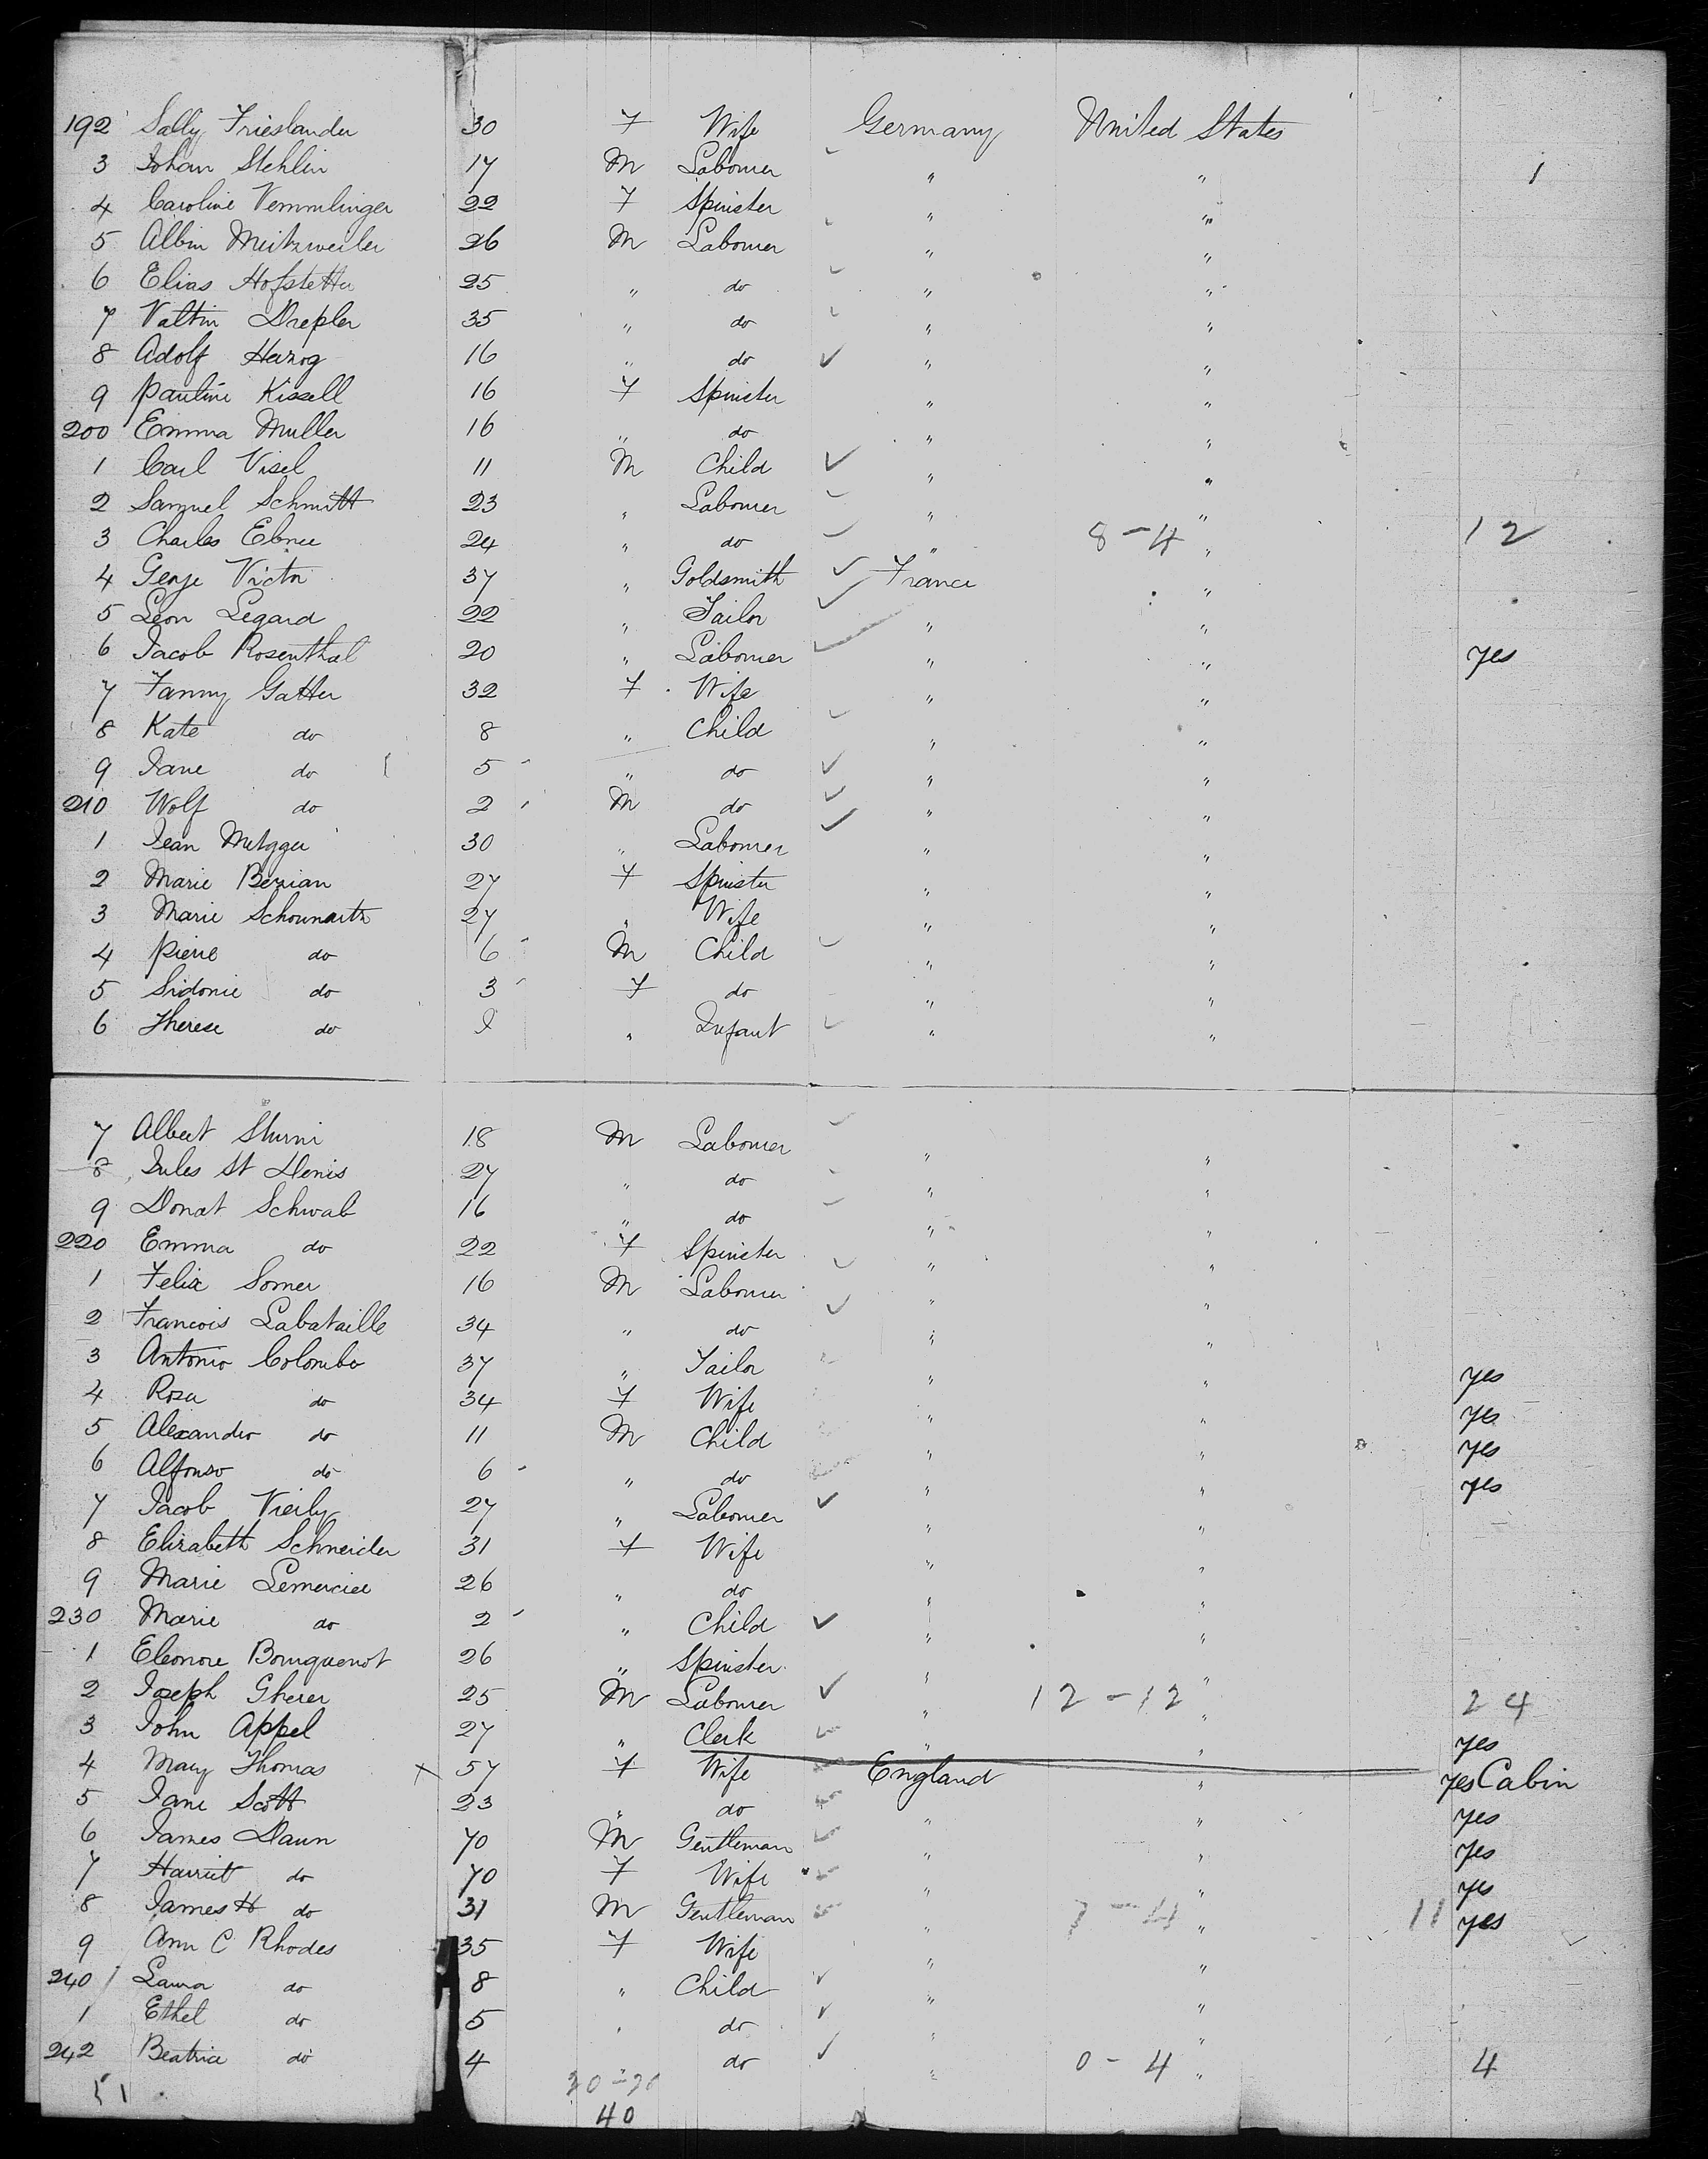 192 Sally Frieslander 30 F Wife Germany United States
3 Johan Stehlin 17 M Labourer " " 1
4 Caroline Vemmlinger 22 F Spinster " "
5 Albin Meitzweiler 26 M Labourer " "
6 Elias Hofstetter 25 " do " "
7 Valtin Drepler 35 " do " "
8 Adolf Herzog 16 " do " "
9 Pauline Kissell 16 F Spinster " "
200 Emma Muller 16 " do " "
1 Carl Visel 11 M Child " "
2 Samuel Schmitt 23 " Labourer " "
3 Charles Ebner 24 " do " 8-4 " 12
4 George Victor 37 " Goldsmith France "
5 Leon Legard 22 " Tailor " "
6 Jacob Rosenthal 20 " Labourer " " yes
7 Fanny Gatter 32 F Wife " "
8 Kate do 8 " Child " "
9 Jane do 5 " do " "
210 Wolf do 2 M do " "
1 Jean Metzger 30 " Labourer " "
2 Marie Berian 27 F Spinster " "
3 Marie Schounartz 27 " Wife " "
4 Pierre do 6 M Child " "
5 Sidonie do 3 F do " "
6 Therese do " Infant " "
7 Albert Sturni 18 M Labourer " "
8 Jules St Denis 27 " do " "
9 Donat Schwab 16 " do " "
220 Emma do 22 F Spinster " "
1 Felix Somer 16 M Labourer " "
2 Francois Labataille 34 " do " "
3 Antonio Colombo 37 " Tailor " " yes
4 Rosa do 34 F Wife " " yes
5 Alexandro do 11 M Child " " yes
6 Alfonso do 6 " do " " yes
7 Jacob Vierly 27 " Labourer " "
8 Elizabeth Schneider 31 F Wife " "
9 Marie Lemercier 26 " do " "
230 Marie do 2 " Child " "
1 Eleonore Bourquenot 26 " Spinster " "
2 Joseph Gherer 25 M Labourer " 12-12 " 24
3 John Appel 27 " Clerk " " yes
4 Mary Thomas x 57 F Wife England " yes Cabin
5 Jane Scott 23 " do " " yes
6 James Daun 70 M Gentleman " " yes
7 Harriet do 70 F Wife " " yes
8 James H do 31 M Gentleman " 7-4 " 11 yes
9 Ann C Rhodes 35 F Wife " "
240 Laura do 8 " Child " "
1 Ethel do 5 " do " "
242 Beatrice do 4 do " 0-4 " 4
51
40